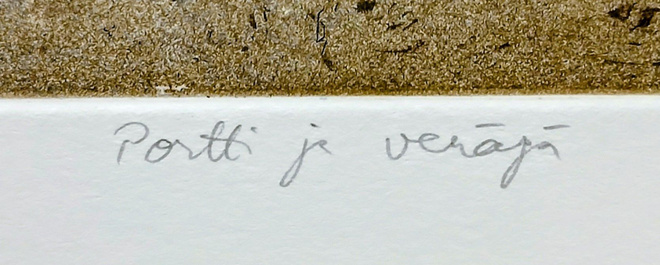 Portti ja veräjä